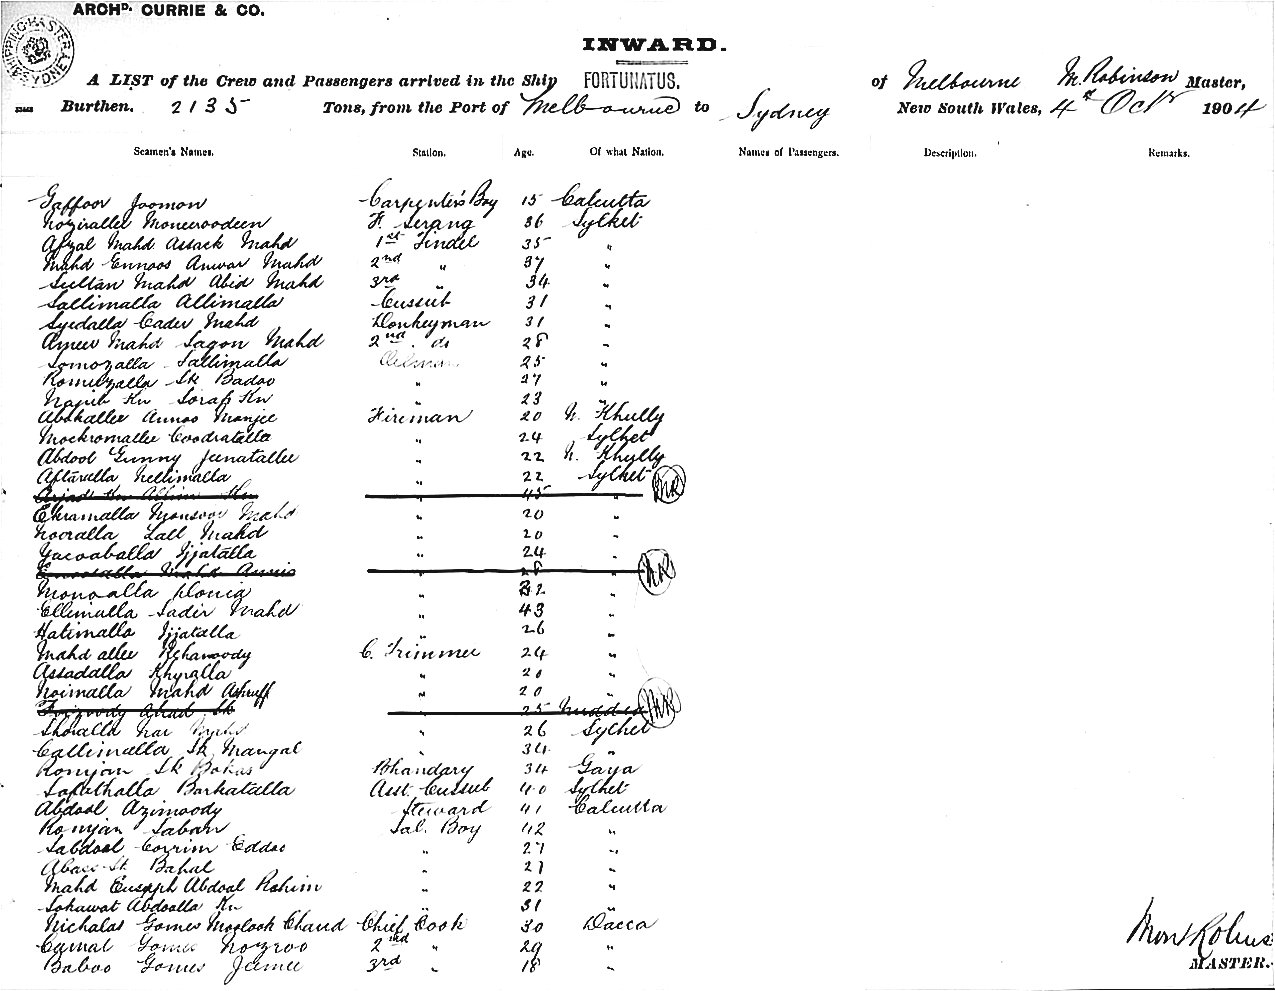 ARCHD. CURRIE & CO.
SHIPPING MASTER SYDNEY
INWARD.
A LIST of the Crew and Passengers arrived in the Ship FORTUNATUS. of Melbourne M. Robinson Master,
Burthen. 2135 Tons, from the Port of Melbourne to Sydney New South Wales, 4th Octr 1904
Seamen's Names. Station. Age. Of what Nation. Names of Passengers. Description. Remarks.
Gaffoor Joomon Carpenter's Boy 15 Calcutta
Nozirallee Moneeroodeen F. Serang 36 Sylhet
Afzal Mahd Assack Mahd 1st Tindel 35 "
Mahd Ennoos Anwar Mahd 2nd " 37 "
Sultan Mahd Abid Mahd 3rd " 34 "
Sallimalla Allimalla Cussub 31 "
Syedalla Cader Mahd Donkeyman 31 "
Ameer Mahd Sagon Mahd 2nd . do 28 "
Somozalla Sallimalla Oilman 25 "
Romuzalla Sk Badoo " 27 "
Najib Kn Soraf Kn " 23 "
Abshallee Annoo Manjee Fireman 20 N. Khully
Mockromallee Coodratalla " 24 Sylhet
Abdool Gunny Jeenatallee " 22 N. Khully
Aftaralla Nellimalla " 22 Sylhet
Kn Kn " 45 " MR
Ekramalla Monsoor Mahd " 20 "
Nooralla Lall Mahd " 20 "
Yacoaballa Ijjatalla " 24 "
Mahd " 28 " MR
Monoalla " 32 "
Ellimalla Sadir Mahd " 43 "
Hatimalla Ijjatalla " 26 "
Mahd allee C. Trimmer 24 "
Assadalla Khyralla " 20 "
Noimalla Mahd Ashruff " 20 "
Ahad Sk " 25 Nuddea MR
Shoralla " 26 Sylhet
Callimalla Sk Mangal " 34 "
Ronjan Sk Bokas Bhandary 34 Gaya
Safathalla Barkatalla Asst. Cussub 40 Sylhet
Abdool Azimoody Steward 41 Calcutta
Ronjan Saban Sal. Boy 42 "
Sabdool Corrim Eddoo " 27 "
Abass Sk Bahal " 27 "
Mahd Eusoph Abdool Rohim " 22 "
Sokawat Abdoalla Kn " 31 "
Nicholas Gomes Moolook Chand Chief Cook 30 Dacca
Camal Gomes Nozroo 2nd " 29 "
Baboo Gomes Jamee 3rd " 18 "
MASTER.